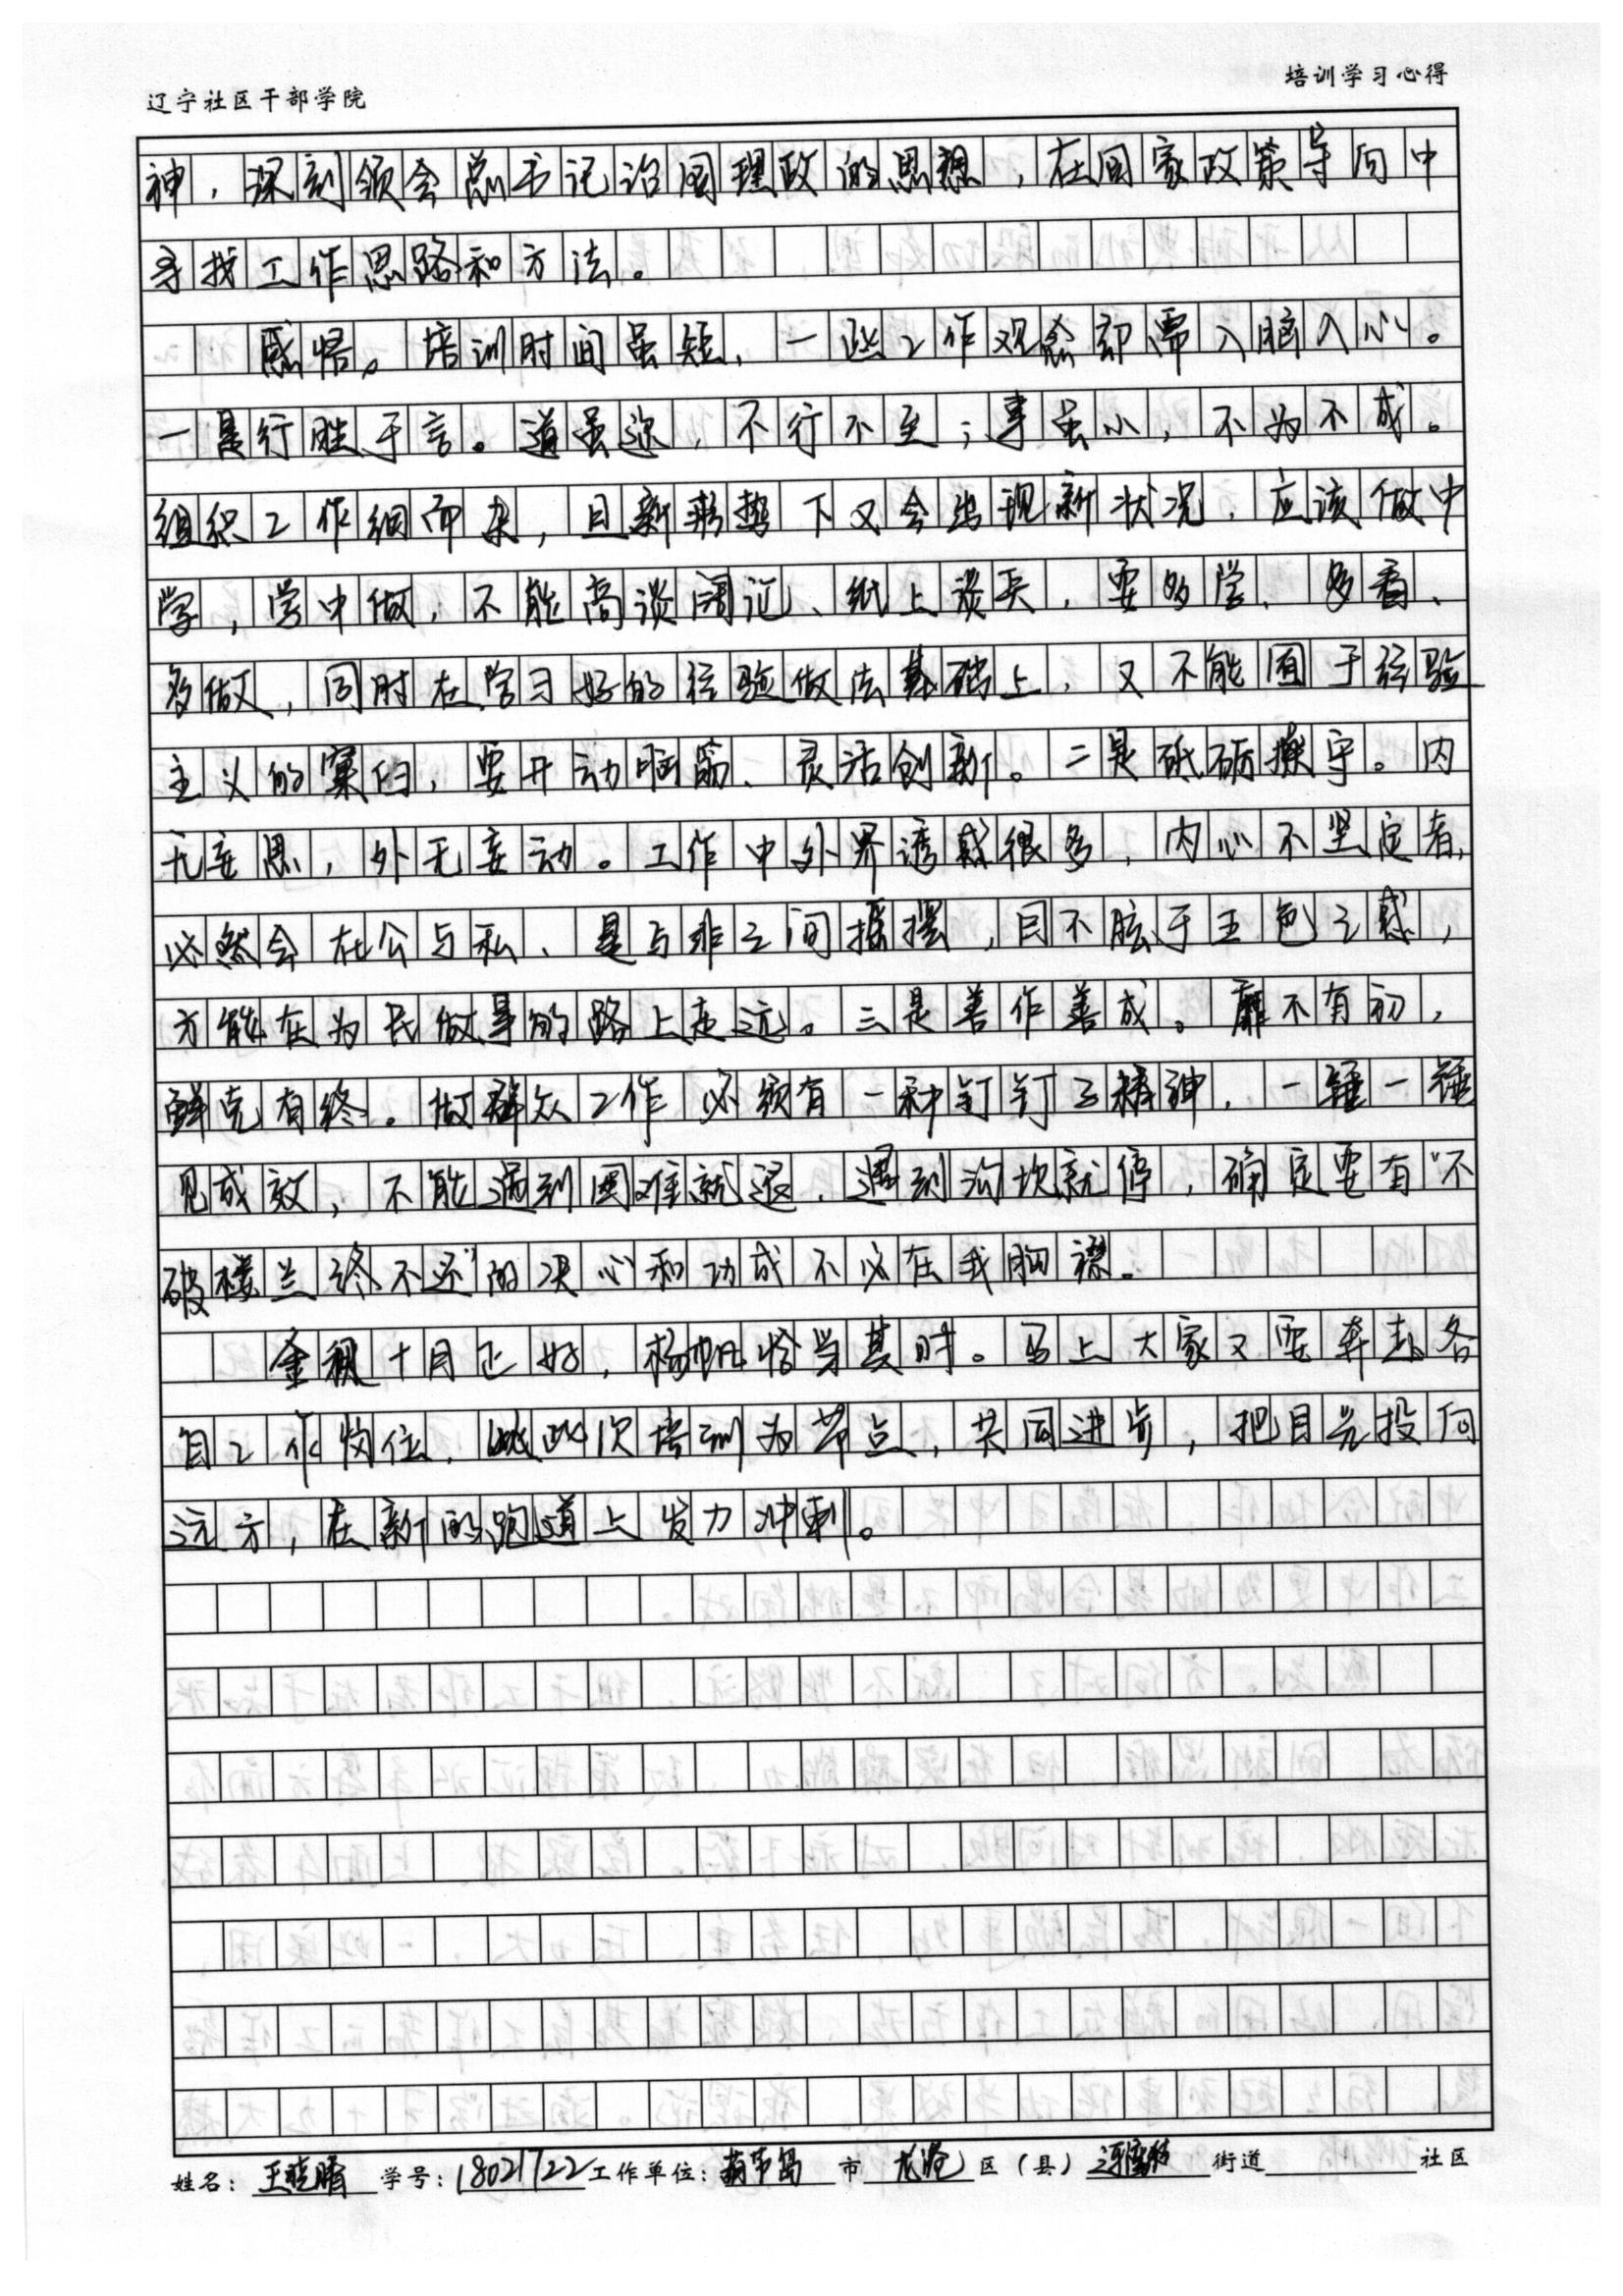 辽宁社区干部学院
培训学习心得
神，深刻领会总书记治国理政的思想，在国家政策导向中
寻找工作思路和方法。
感悟。培训时间虽短，一些工作观念却需入脑入心。
一是行胜于言。道虽迩，不行不至；事虽小，不为不成。
组织工作细而杂，且新形势下又会出现新状况，应该做中
学，学中做，不能高谈阔论、纸上谈兵，要多学、多看、
多做，同时在学习好的经验做法基础上，又不能囿于经验
主义的窠臼，要开动脑筋、灵活创新。二是砥砺操守。内
无妄思，外无妄动。工作中外界诱惑很多，内心不坚定者，
必然会在公与私、是与非之间摇摆，目不眩于五色之惑，
方能在为民做事的路上走远。三是善作善成。靡不有初，
鲜克有终。做群众工作必须有一种钉钉子精神，一锤一锤
见成效，不能遇到困难就退，遇到沟坎就停，确定要有“不
破楼兰终不还”的决心和功成不必在我胸襟。
金秋十月正好，杨帆恰当其时。马上大家又要奔赴各
自工作岗位，以此次培训为节点，共同进步，把目光投向
远方，在新的跑道上发力冲刺。
姓名：王晓晴 学号：18021722 工作单位：葫芦岛 市 龙港 区（县） 街道 社区